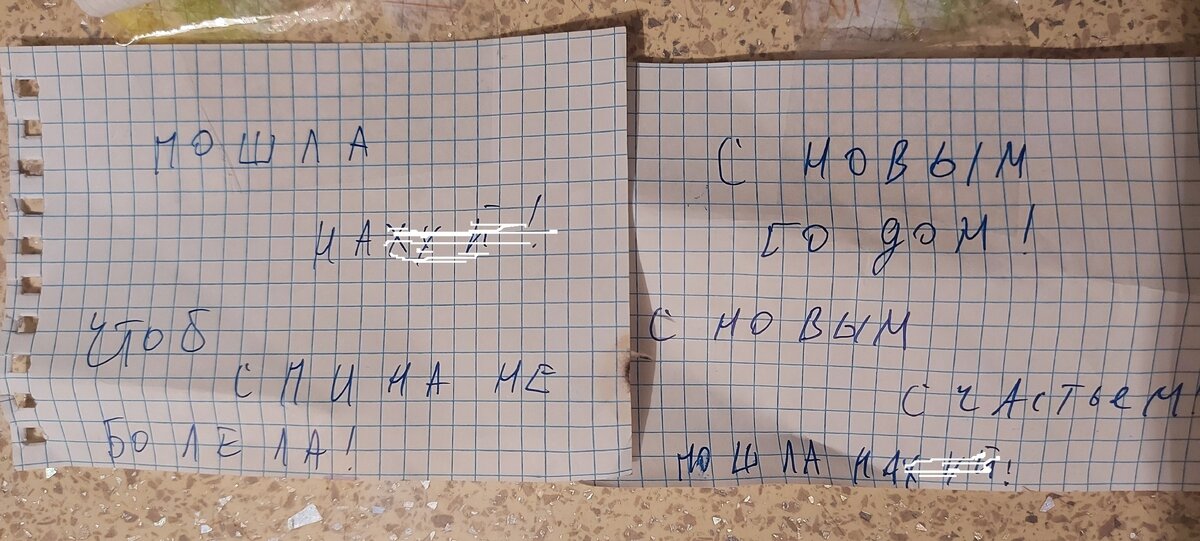 ПОШЛА
НАХУЙ!
ЧТОБ
СПИНА НЕ
БОЛЕЛА!
С НОВЫМ
ГОДОМ!
С НОВЫМ
СЧАСТЬЕМ
ПОШЛА НАХУЙ!